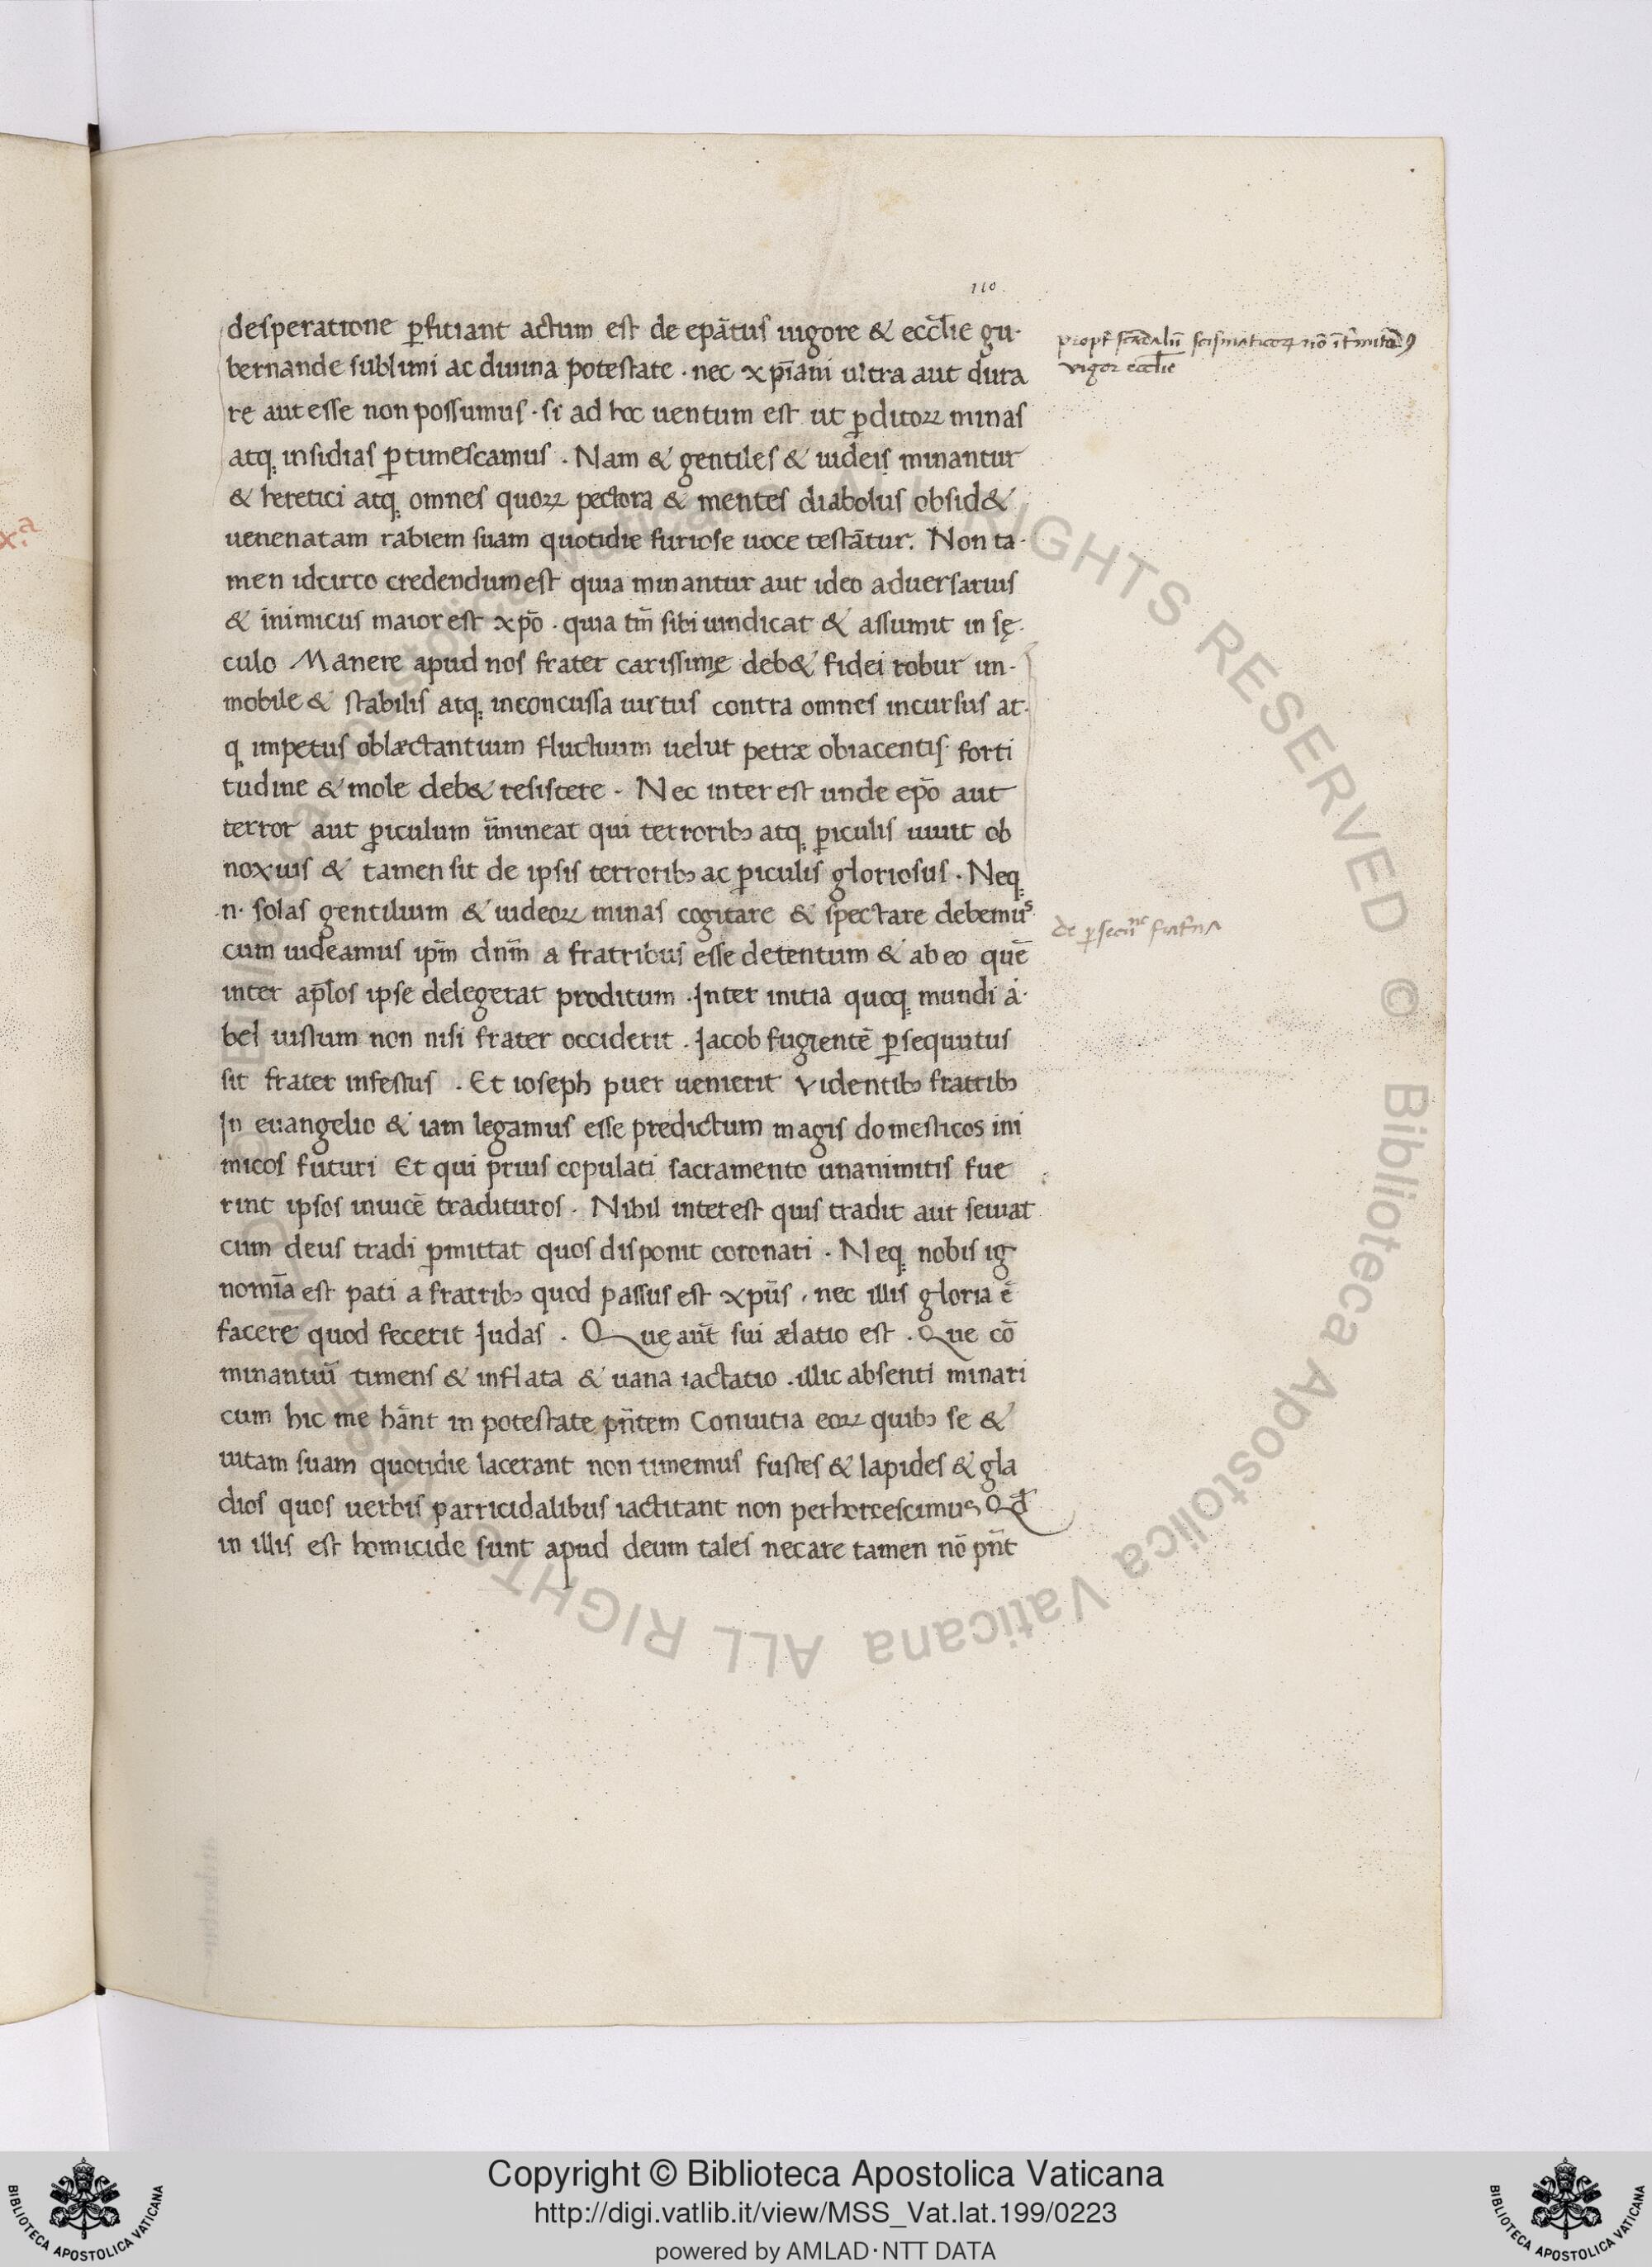 110
desperatione ꝑfitiant actum est de epātus uigore & eccl̄ie gu-
bernande sublimi ac diuina potestate · nec xp̄iani ultra aut dura
re aut esse non possumus · si ad hoc uentum est ut ꝑditoꝝ minas
atq; insidias ꝑtimescamus . Nam & gentiles & iudeis minantur
& heretici atq; omnes quoꝝ pectora & mentes diabolus obsid&
uenenatam rabiem suam quotidie furiose uoce testātur. Non ta-
men idcirco credendum est quia minantur aut ideo aduersarius
& inimicus maior est xp̄o . quia tm̄ sibi uindicat & assumit in sę-
culo Manere apud nos frater carissimę deb& fidei robur im-
mobile & stabilis atq; inconcussa uirtus contra omnes incursus at-
q; impetus oblæctantium fluctuum uelut petræ obiacentis forti
tudine & mole deb& resistere . Nec interest unde ep̄o aut
terror aut ꝑiculum īmineat qui terroribꝫ atq; ꝑiculis uiuit ob
noxius & tamen sit de ipsis terroribꝫ ac ꝑiculis gloriosus . Neq;
.n. solas gentilium & iudeoꝝ minas cogitare & spectare debemus
cum uideamus ip̄m dn̄m a fratribus esse detentum & ab eo quē
inter ap̄los ipse delegerat proditum . Inter initia quoq; mundi a-
bel iustum non nisi frater occiderit . Jacob fugientē ꝑsequutus
sit frater infestus . Et ioseph puer uenierit Videntibꝫ fratribꝫ
In euangelio & iam legamus esse predictum magis domesticos ini
micos futuri Et qui prius copulati sacramento unanimitis fue
rint ipsos inuicē tradituros . Nihil interest quis tradit aut seuiat
cum deus tradi ꝑmittat quos disponit coronari . Neq; nobis ig
nomīa est pati a fratribꝫ quod passus est xp̄us . nec illis gloria ē
facere quod fecerit Judas . Quę aūt sui ælatio est . Que cō
minantiū timens & inflata & uana iactatio . illic absenti minari
cum hic me hānt in potestate pn̄tem Conuitia eoꝝ quibꝫ se &
uitam suam quotidie lacerant non timemus fustes & lapides & gla
dios quos uerbis parricidalibus iactitant non perhorrescimus Qd̄
in illis est homicide sunt apud deum tales necare tamen nō pn̄t
vigor eccl̄ie
de ꝑsecūne frat̄na
x.a
© Biblioteca Apostolica Vaticana ALL RIGHTS RESERVED © Biblioteca Apostolica Vaticana ALL RIGHTS
Copyright © Biblioteca Apostolica Vaticana
http://digi.vatlib.it/view/MSS_Vat.lat.199/0223
powered by AMLAD·NTT DATA
BIBLIOTECA APOSTOLICA VATICANA
BIBLIOTECA APOSTOLICA VATICANA